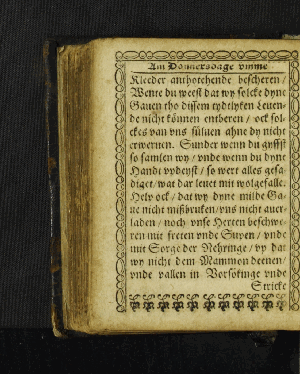 Am Donnersdage vmme
Kleeder anthotehende bescheren /
Wente du weest dat wy solcke dyne
Gauen tho dissem tydtlyken Leuen-
de nicht können entberen / ock sol-
ckes van vns süluen ahne dy nicht
erweruen. Sunder wenn du gyffst
so samlen wy / vnde wenn du dyne
Handt vpdeyst / so wert alles gesa-
diget / wat dar leuet mit wolgefalle.
Help ock / dat wy dyne milde Ga-
ue nicht mißbruken / vns nicht auer-
laden / noch vnse Herten beschwe-
ren mit freten vnde Supen / vnde
mit Sorge der Nehringe / vp dat
wy nicht dem Mammon deenen /
vnde vallen in Vorsökinge vnde
Stricke